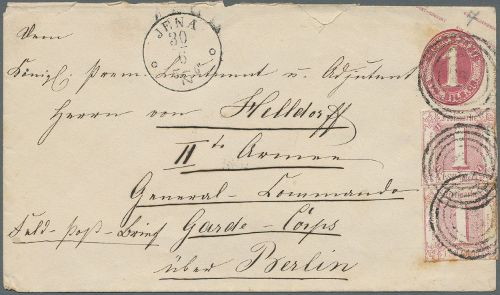 JENA
30
5
1
Dem
Königl. Prem. Lieutenant u. Adjutant
Herrn von Helldorff
II te Armee
1
General-Commando
Feld-Post-Brief Garde-Corps
1
über Berlin